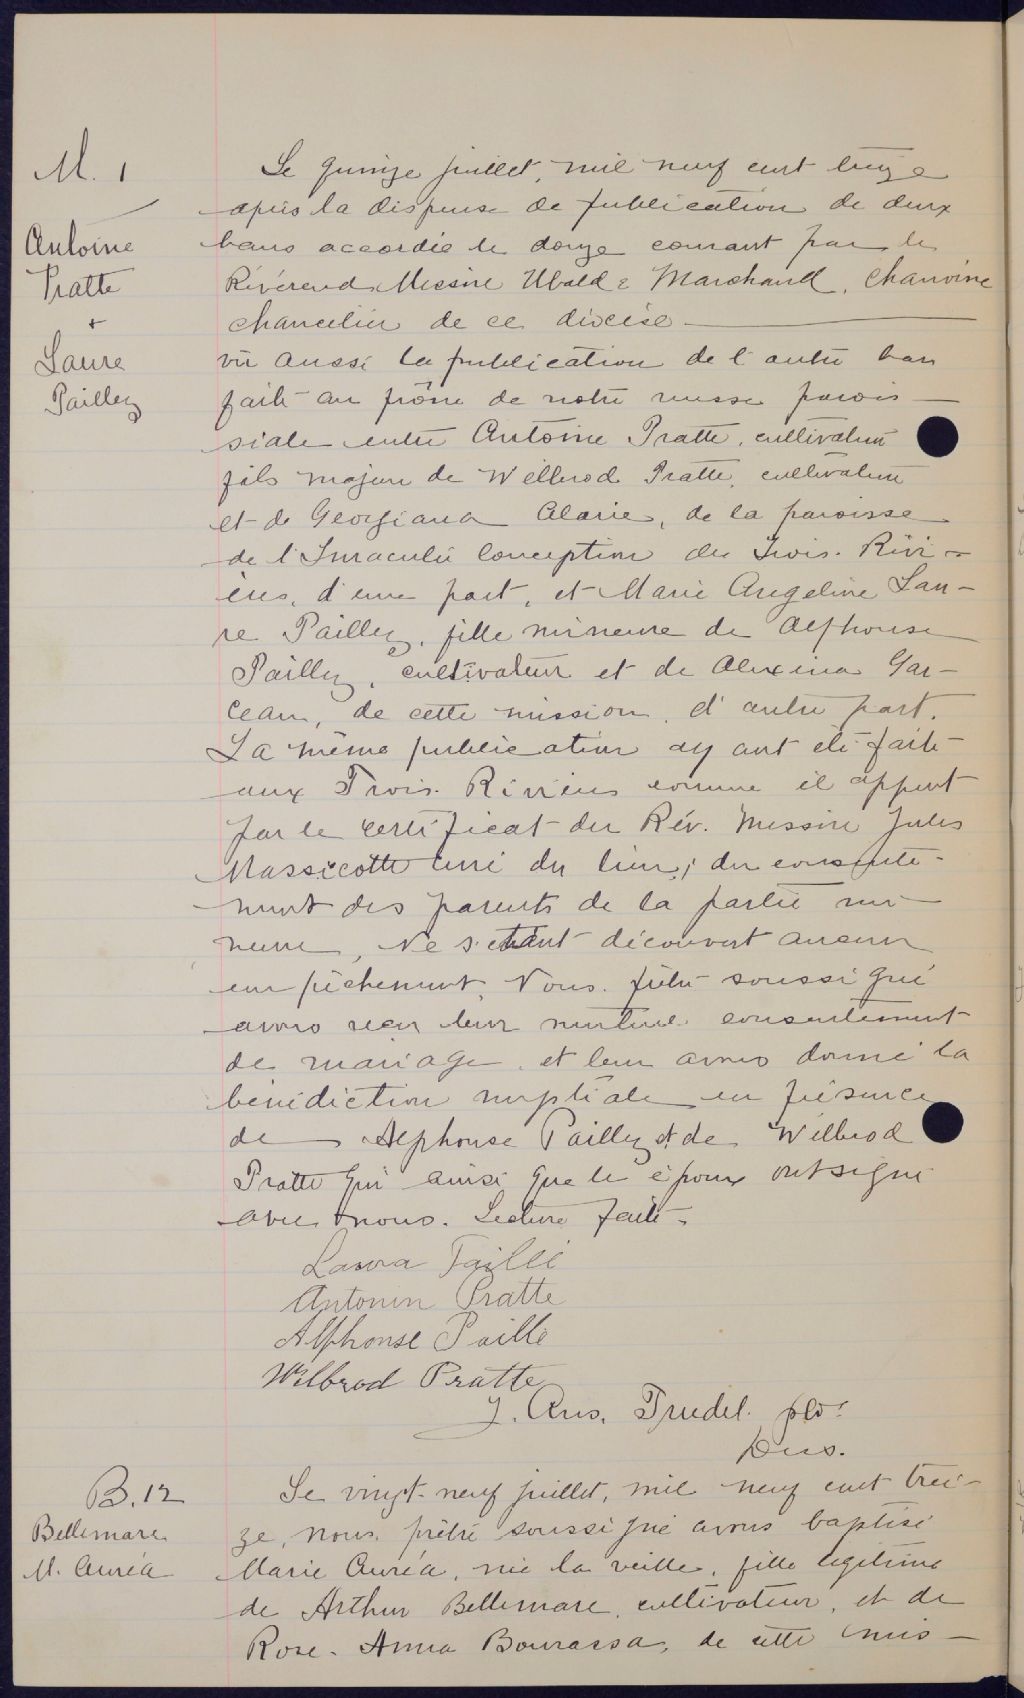 M. 1
Antoine
Pratte
+
Laure
Pailley
Le quinze juillet, mil neuf cent treize
après la dispense de publication de deux
bans accordée le douze courant par le
Révérend Messire Ubalde Marchand, Chanoine
chancelier de ce diocèse
vu aussi la publication de l'autre ban
faite au prône de notre messe parois-
siale entre Antoine Pratte, cultivateur
fils majeur de Wilbrod Pratte, cultivateur
et de Georgiana Alarie, de la paroisse
de l'Imaculée Conception des Trois-Rivi-
ères, d'une part, et Marie Angeline Lau-
re Pailley, fille mineure de Alphonse
Pailley, cultivateur et de Alexina Gar-
ceau, de cette mission, d'autre part.
La même publication ayant été faite
aux Trois-Rivières comme il appert
par le certificat du Rév. Messire Jules
Massicotte curé du lieu; du consente-
ment des parents de la partie mi-
neure, Ne s'étant découvert aucun
empêchement, Nous, prêtre soussigné
avons reçu leur mutuel consentement
de mariage, et leur avons donné la
bénédiction nuptiale en présence
de Alphonse Pailley et de Wilbrod
Pratte qui ainsi que le époux ont signé
avec nous. Lecture faite.
Laura Paillé
Antonin Pratte
Alphonse Paillé
Wilbrod Pratte
J. Ans. Trudel. ptre
Des.
B. 12
Bellemare
M. Auréa
Le vingt-neuf juillet, mil neuf cent trei-
ze, nous, prêtre soussigné avons baptisé
Marie Auréa, née la veille, fille légitime
de Arthur Bellemare, cultivateur, et de
Rose-Anna Bourassa, de cette mis-